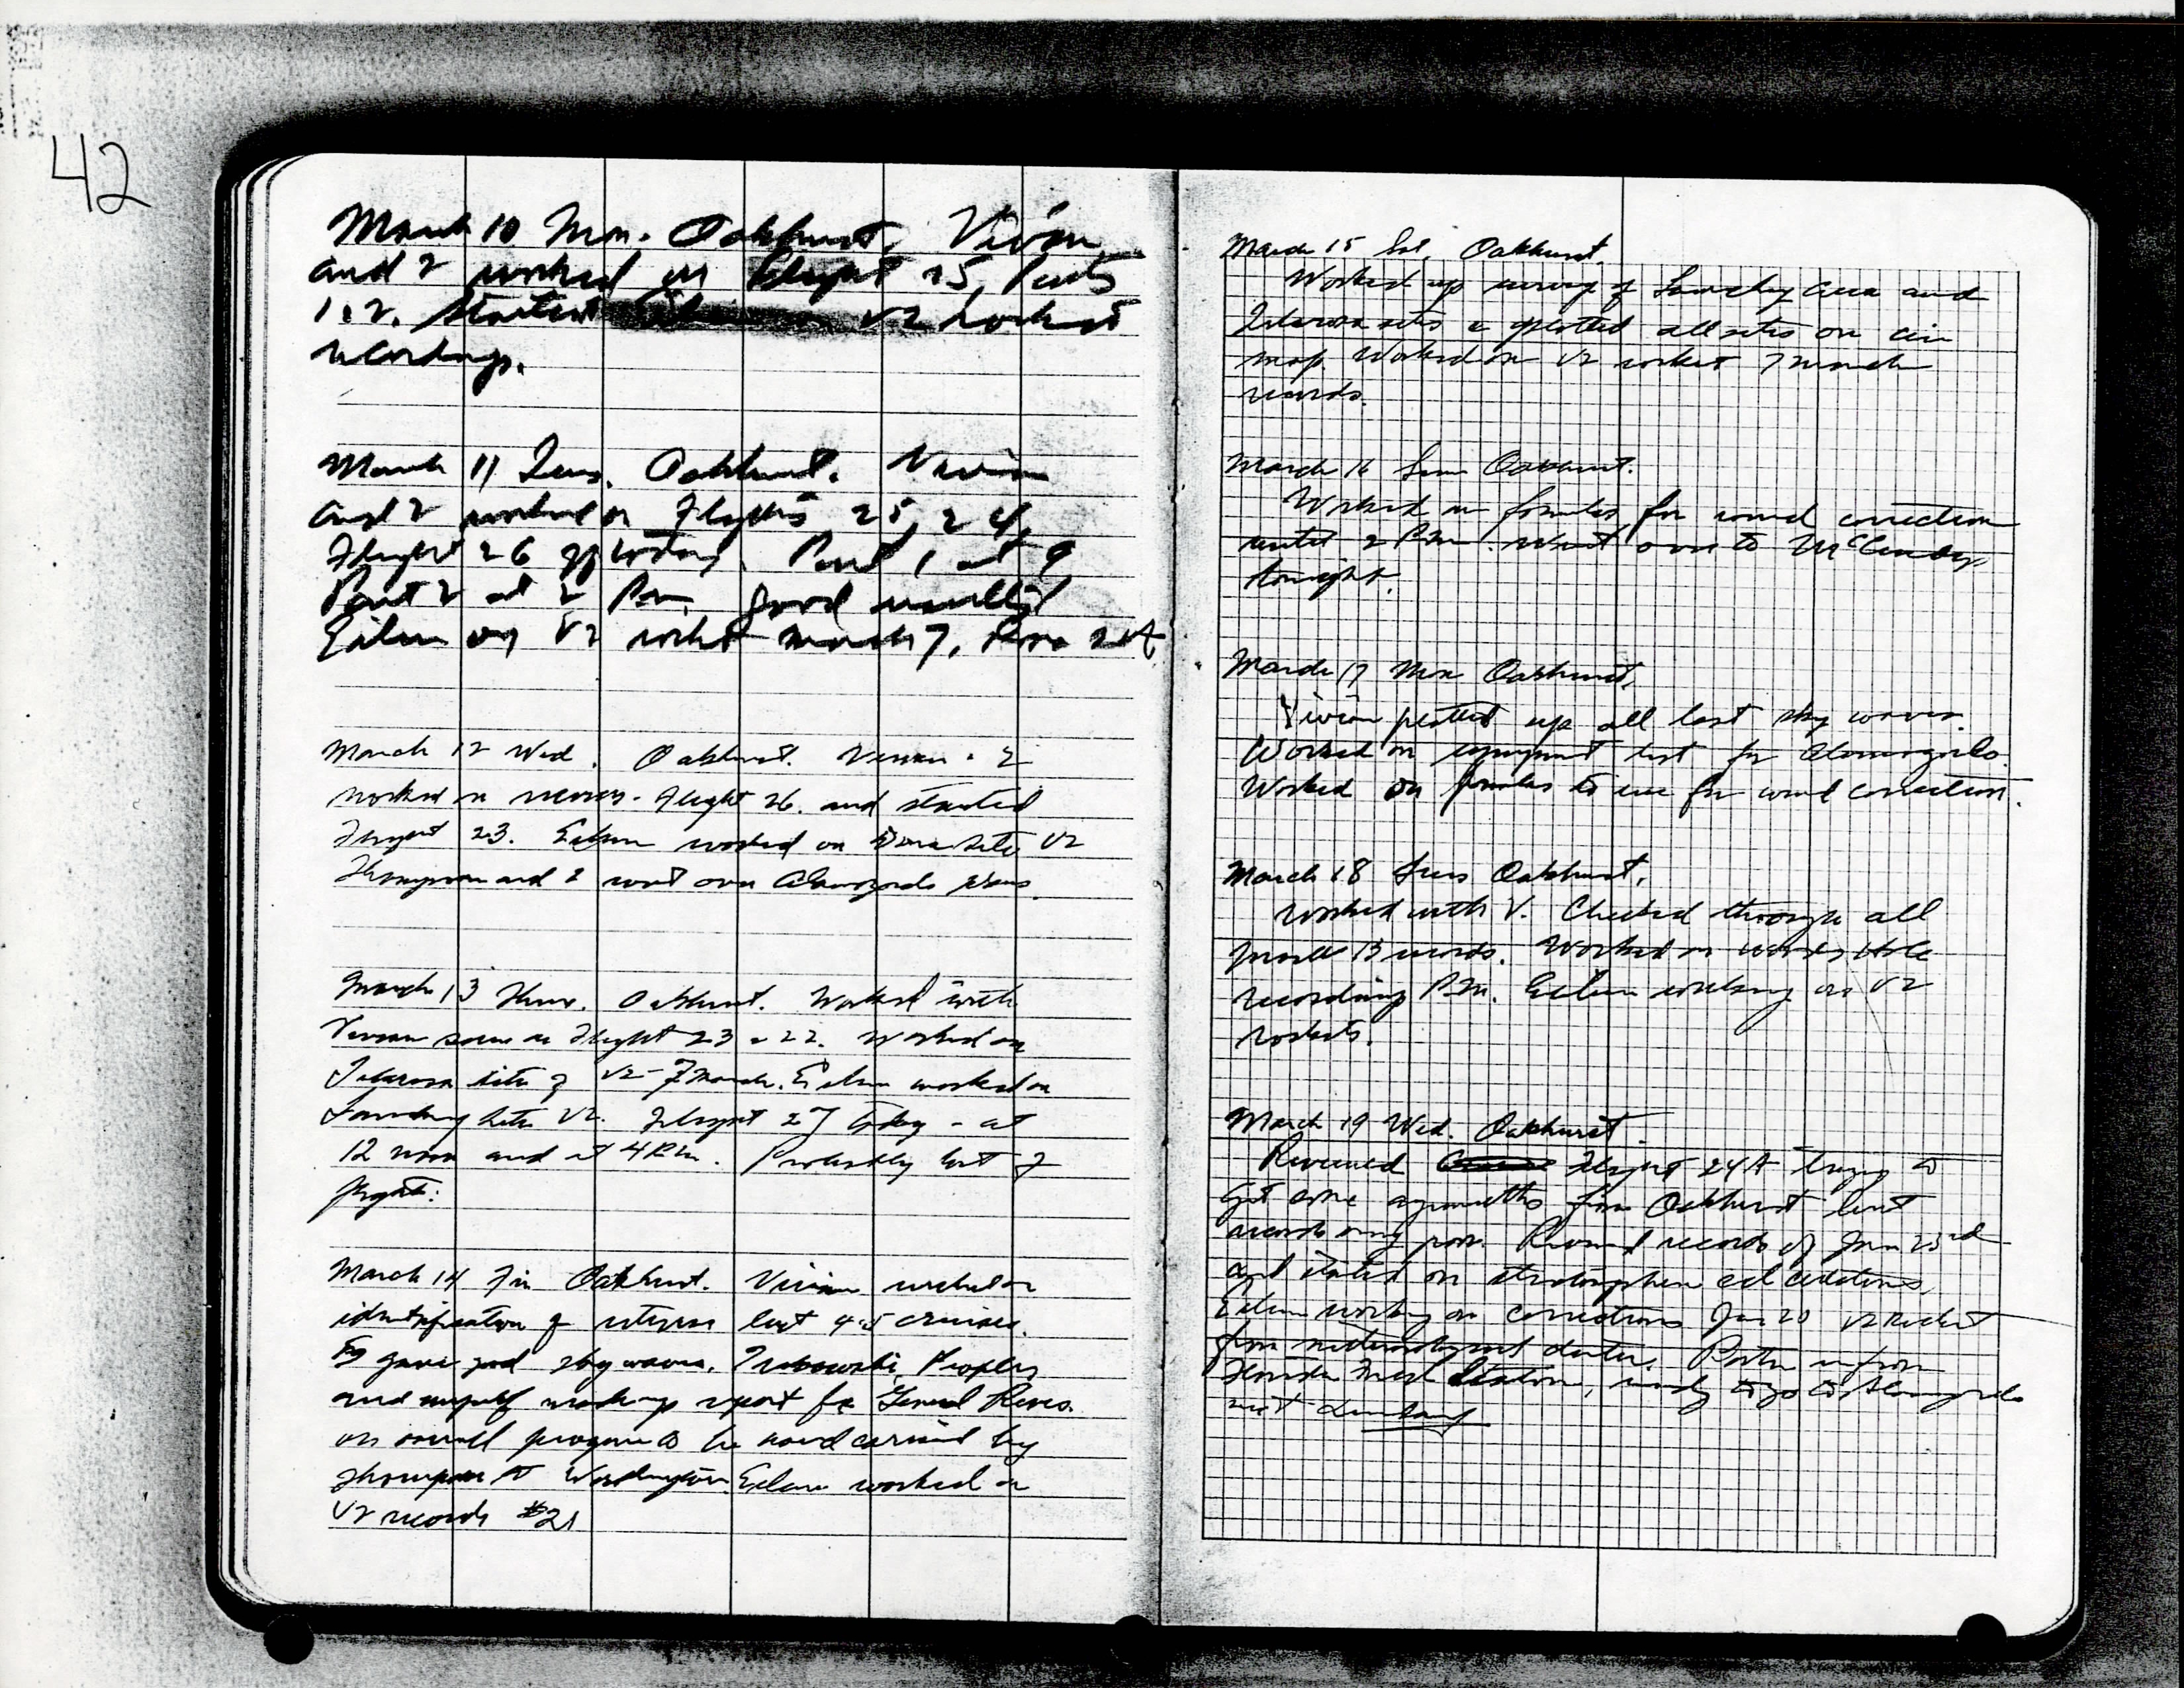 42
March 10 Mon. Oakhurst. Vivian
and I worked on Flight 25, Parts
1 & 2. Started V2 rocket
recordings.
March 11 Tues. Oakhurst. Vivian
and I worked on Flights 25, 24,
Flight 26 of today. Part 1 at 9
Part 2 at 2 P.m. Good results
Eileen on V2 rocket March 7,
March 12 Wed. Oakhurst. Vivian & I
worked on Flight 26. and started
Flight 23. Eileen worked on site V2
Thompson and I went over Alamogordo plans.
March 13 Thur. Oakhurst. Worked with
Vivian some on Flight 23 & 22. Worked on
Tularosa site of V2 - 7 March. Eileen worked on
Landing site V2. Flight 27 today - at
12 noon and at 4 P.m. Probably last of
flights.
March 14 Fri Oakhurst. Vivian worked on
identification of returns last 4 & 5 cruises.
gave good sky waves. Trakowski, Peoples
and myself working up report for General Rives
on overall program to be hand carried by
Thompson to Washington. Eileen worked on
V2 records #21
March 15 Sat. Oakhurst.
Worked up survey of area and
Tularosa sites & plotted all sites on air
map. Worked on V2 rocket 7 March
records.
March 16 Sun Oakhurst.
Worked on formulas for wind correction
until 2 P.m. Went over to
tonight.
March 17 Mon Oakhurst.
Vivian plotted up all last sky waves.
Worked on equipment list for Alamogordo.
Worked on formulas to use for wind correction.
March 18 Tues Oakhurst.
Worked with V. Checked through all
March 13 records. Worked on Woods Hole
recordings P.m. Eileen working on V2
rockets.
March 19 Wed. Oakhurst.
Reviewed Flight 24A trying to
get some azimuths from Oakhurst but
records very poor. Reviewed records of Jan 23rd
and started on stratosphere calculations.
Eileen working on corrections Jan 20 V2 Rocket
from meteorological data. in from
Florida Fred, ready to go to Alamogordo